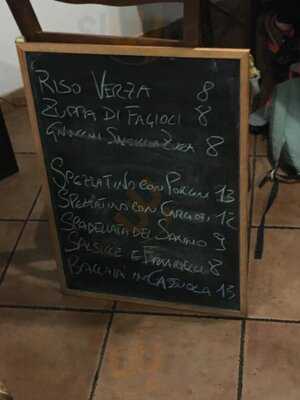 RISO VERZA 8
ZUPPA DI FAGIOLI 8
GNOCCHI SALSICCIA ZUCCA 8
SPEZZATINO CON PORCINI 13
SPEZZATINO CON CARCIOFI 12
SPADELLATA DEL 9
SALSICCE E FRIARIELLI 8
BACCALÀ IN CASSUOLA 15